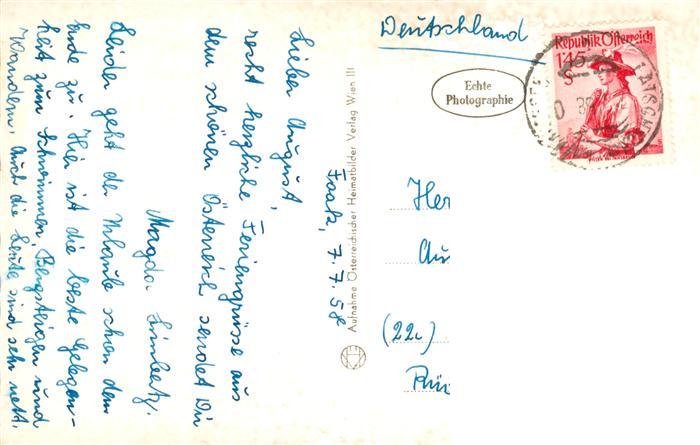 Deutschland
Republik Österreich
1'45
S
Echte
Photographie
Faak, 7.7.58
Lieber August,
recht herzliche Feriengrüsse aus
dem schönen Österreich sendet Dir
Magda
Leider geht der Urlaub schon dem
Ende zu. Hier ist die beste Gelegen-
heit zum Schwimmen, Bergsteigen und
Wandern. Auch die Leute sind sehr nett.
Aufnahme Österreichischer Heimatbilder Verlag Wien III
Her
Au
(22c)